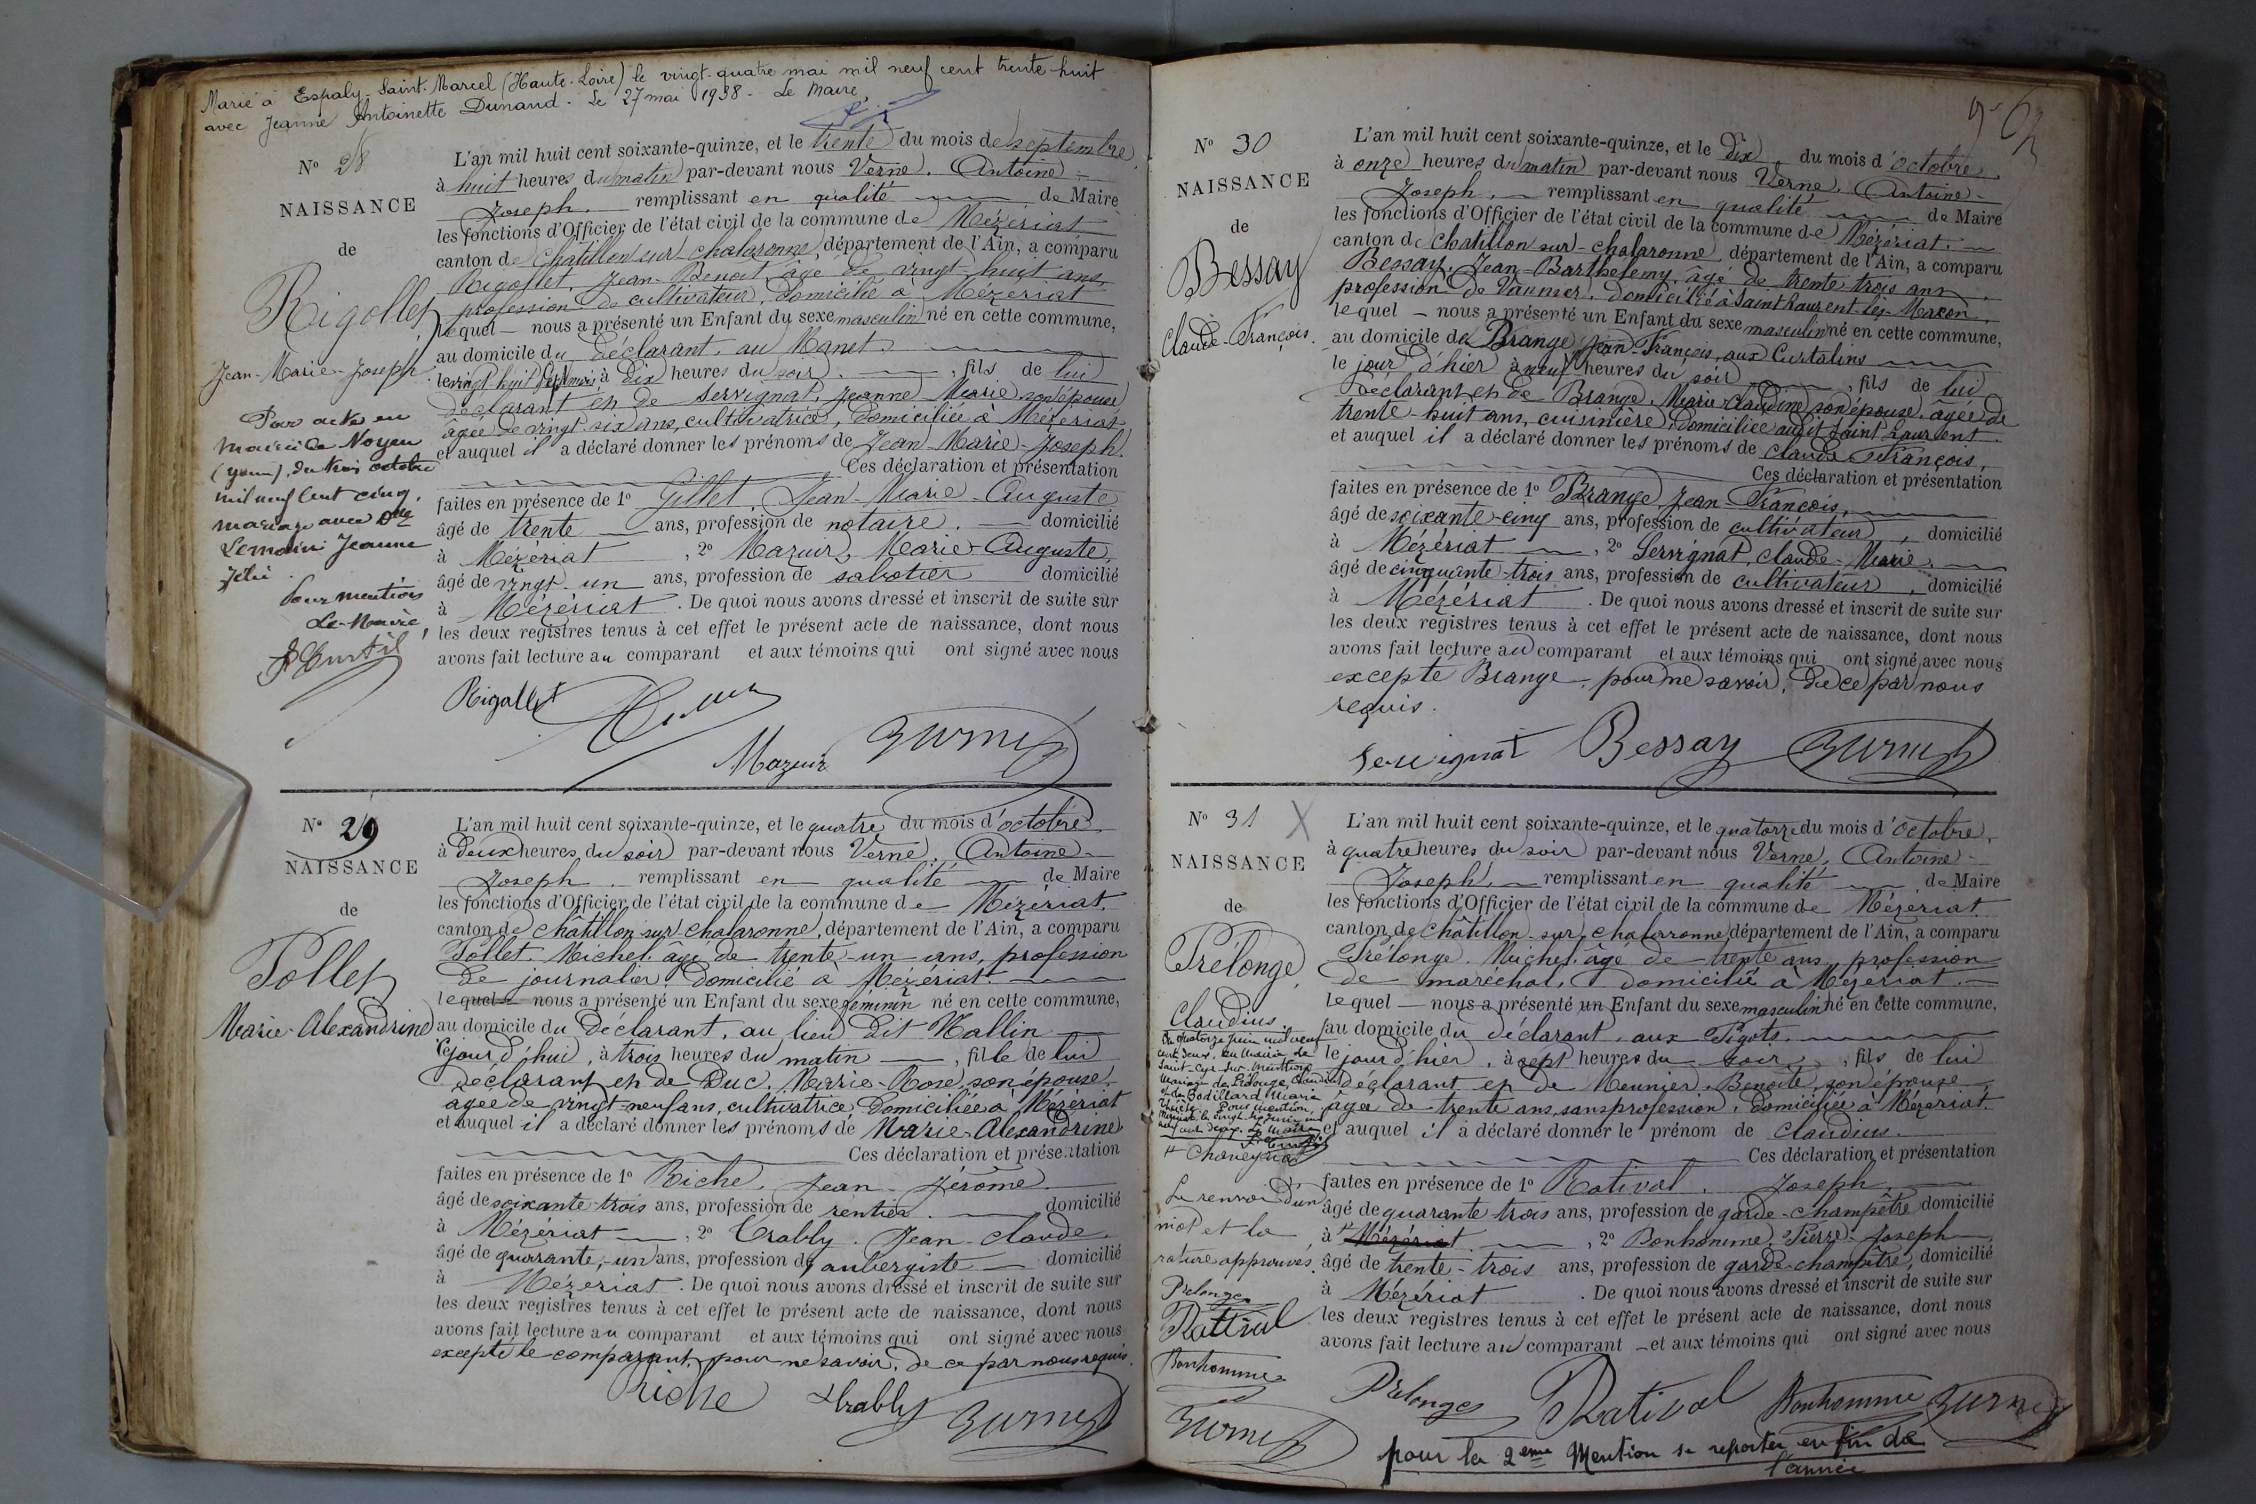 Marié à Espaly-Saint-Marcel (Haute-Loire) le vingt-quatre mai mil neuf cent trente-huit
avec Jeanne Antoinette Dunand. Le 27 mai 1938 - Le Maire,
N° 28
NAISSANCE
de
Rigollet
Jean-Marie-Joseph
Par acte en
mairie de Noyen
du trois octobre
mil neuf cent cinq,
mariage avec Dlle
Lemoine Jeanne
Pour mention
Le Maire,
L'an mil huit cent soixante-quinze, et le trente du mois de septembre
à huit heures du matin par-devant nous Verne, Antoine-
Joseph, remplissant en qualité de Maire
les fonctions d'Officier de l'état civil de la commune de Mézériat
canton de Châtillon sur Chalaronne, département de l'Ain, a comparu
Rigollet, Jean-Benoit âgé de vingt-huit ans,
profession de cultivateur, domicilié à Mézériat
lequel nous a présenté un Enfant du sexe masculin né en cette commune,
au domicile du déclarant, au Manet
le vingt huit à dix heures du soir, fils de lui
déclarant et de Servignat, Jeanne Marie son épouse
âgée de vingt-six ans, cultivatrice, domiciliée à Mézériat,
et auquel il a déclaré donner les prénoms de Jean-Marie-Joseph.
Ces déclaration et présentation
faites en présence de 1° Gillet, Jean-Marie-Auguste
âgé de trente ans, profession de notaire, domicilié
à Mézériat, 2° Mazuir, Marie-Auguste,
âgé de vingt-un ans, profession de sabotier domicilié
à Mézériat. De quoi nous avons dressé et inscrit de suite sur
les deux registres tenus à cet effet le présent acte de naissance, dont nous
avons fait lecture au comparant et aux témoins qui ont signé avec nous
Rigollet
Mazuir
N° 29
NAISSANCE
de
Pollet
Marie-Alexandrine
L'an mil huit cent soixante-quinze, et le quatre du mois d'octobre
à deux heures du soir par-devant nous Verne, Antoine-
Joseph, remplissant en qualité de Maire
les fonctions d'Officier de l'état civil de la commune de Mézériat
canton de Châtillon sur Chalaronne, département de l'Ain, a comparu
Pollet, Michel, âgé de trente-un ans, profession
de journalier, domicilié à Mézériat.
lequel nous a présenté un Enfant du sexe féminin né en cette commune,
au domicile du déclarant, au lieu dit Mallin
le jour d'hui, à trois heures du matin, fille de lui
déclarant et de Duc, Marie-Rose, son épouse,
âgée de vingt-neuf ans, cultivatrice, domiciliée à Mézériat
et auquel il a déclaré donner les prénoms de Marie-Alexandrine
Ces déclaration et présentation
faites en présence de 1° Riche, Jean-Jérôme
âgé de soixante-trois ans, profession de rentier, domicilié
à Mézériat, 2° Trably, Jean-Claude,
âgé de quarante-un ans, profession de aubergiste domicilié
à Mézériat. De quoi nous avons dressé et inscrit de suite sur
les deux registres tenus à cet effet le présent acte de naissance, dont nous
avons fait lecture au comparant et aux témoins qui ont signé avec nous
excepté le comparant, pour ne savoir, de ce par nous requis.
Riche Trably
N° 30
NAISSANCE
de
Bessay
Claude-François.
L'an mil huit cent soixante-quinze, et le dix du mois d'octobre,
à onze heures du matin par-devant nous Verne, Antoine-
Joseph, remplissant en qualité de Maire
les fonctions d'Officier de l'état civil de la commune de Mézériat.
canton de Châtillon sur-Chalaronne, département de l'Ain, a comparu
Bessay, Jean-Barthelemy, âgé de trente trois ans,
profession de vannier, domicilié à Saint Laurent-les-Macon,
lequel nous a présenté un Enfant du sexe masculin né en cette commune,
au domicile de Brange Jean-François, aux Curtalins
le jour d'hier à neuf heures du soir, fils de lui
déclarant et de Brange, Marie-Claudine, son épouse, âgée de
trente-huit ans, cuisinière, domiciliée audit Saint Laurent.
et auquel il a déclaré donner les prénoms de Claude-François,
Ces déclaration et présentation
faites en présence de 1° Brange, Jean-François,
âgé de soixante-cinq ans, profession de cultivateur, domicilié
à Mézériat, 2° Servignat, Claude-Marie,
âgé de cinquante-trois ans, profession de cultivateur, domicilié
à Mézériat. De quoi nous avons dressé et inscrit de suite sur
les deux registres tenus à cet effet le présent acte de naissance, dont nous
avons fait lecture au comparant et aux témoins qui ont signé avec nous
excepté Brange, pour ne savoir, de ce par nous
requis.
Servignat Bessay
N° 31 X
NAISSANCE
de
Prélonge,
Claudius
Du quatorze juin mil neuf
cent deux, en mairie de
Saint-Cyr-sur-Menthon
mariage de Prélonge, Claudius
et de Bodillard Marie
Pour mention,
+ Champêtre
Le renvoi d'un
mot et la
rature approuvés.
Prelonge
Rattival
Bonhomme
L'an mil huit cent soixante-quinze, et le quatorze du mois d'octobre,
à quatre heures du soir par-devant nous Verne, Antoine-
Joseph, remplissant en qualité de Maire
les fonctions d'Officier de l'état civil de la commune de Mézériat
canton de Châtillon-sur-Chalaronne, département de l'Ain, a comparu
Prélonge, Michel, âgé de trente ans, profession
de maréchal, domicilié à Mézériat.
lequel nous a présenté un Enfant du sexe masculin né en cette commune,
au domicile du déclarant, aux Pigots
le jour d'hier, à sept heures du soir, fils de lui
déclarant et de Meunier, Benoite, son épouse,
âgée de trente ans, sans profession, domiciliée à Mézériat.
et auquel il a déclaré donner le prénom de Claudius.
Ces déclaration et présentation
faites en présence de 1° Rativat, Joseph,
âgé de quarante trois ans, profession de garde-champêtre domicilié
à + Mézériat, 2° Bonhomme, Pierre-Joseph,
âgé de trente-trois ans, profession de garde-champêtre, domicilié
à Mézériat. De quoi nous avons dressé et inscrit de suite sur
les deux registres tenus à cet effet le présent acte de naissance, dont nous
avons fait lecture au comparant et aux témoins qui ont signé avec nous
Prelonge Ratival Bonhomme
pour la 2eme Mention se reporter en fin de
l'année